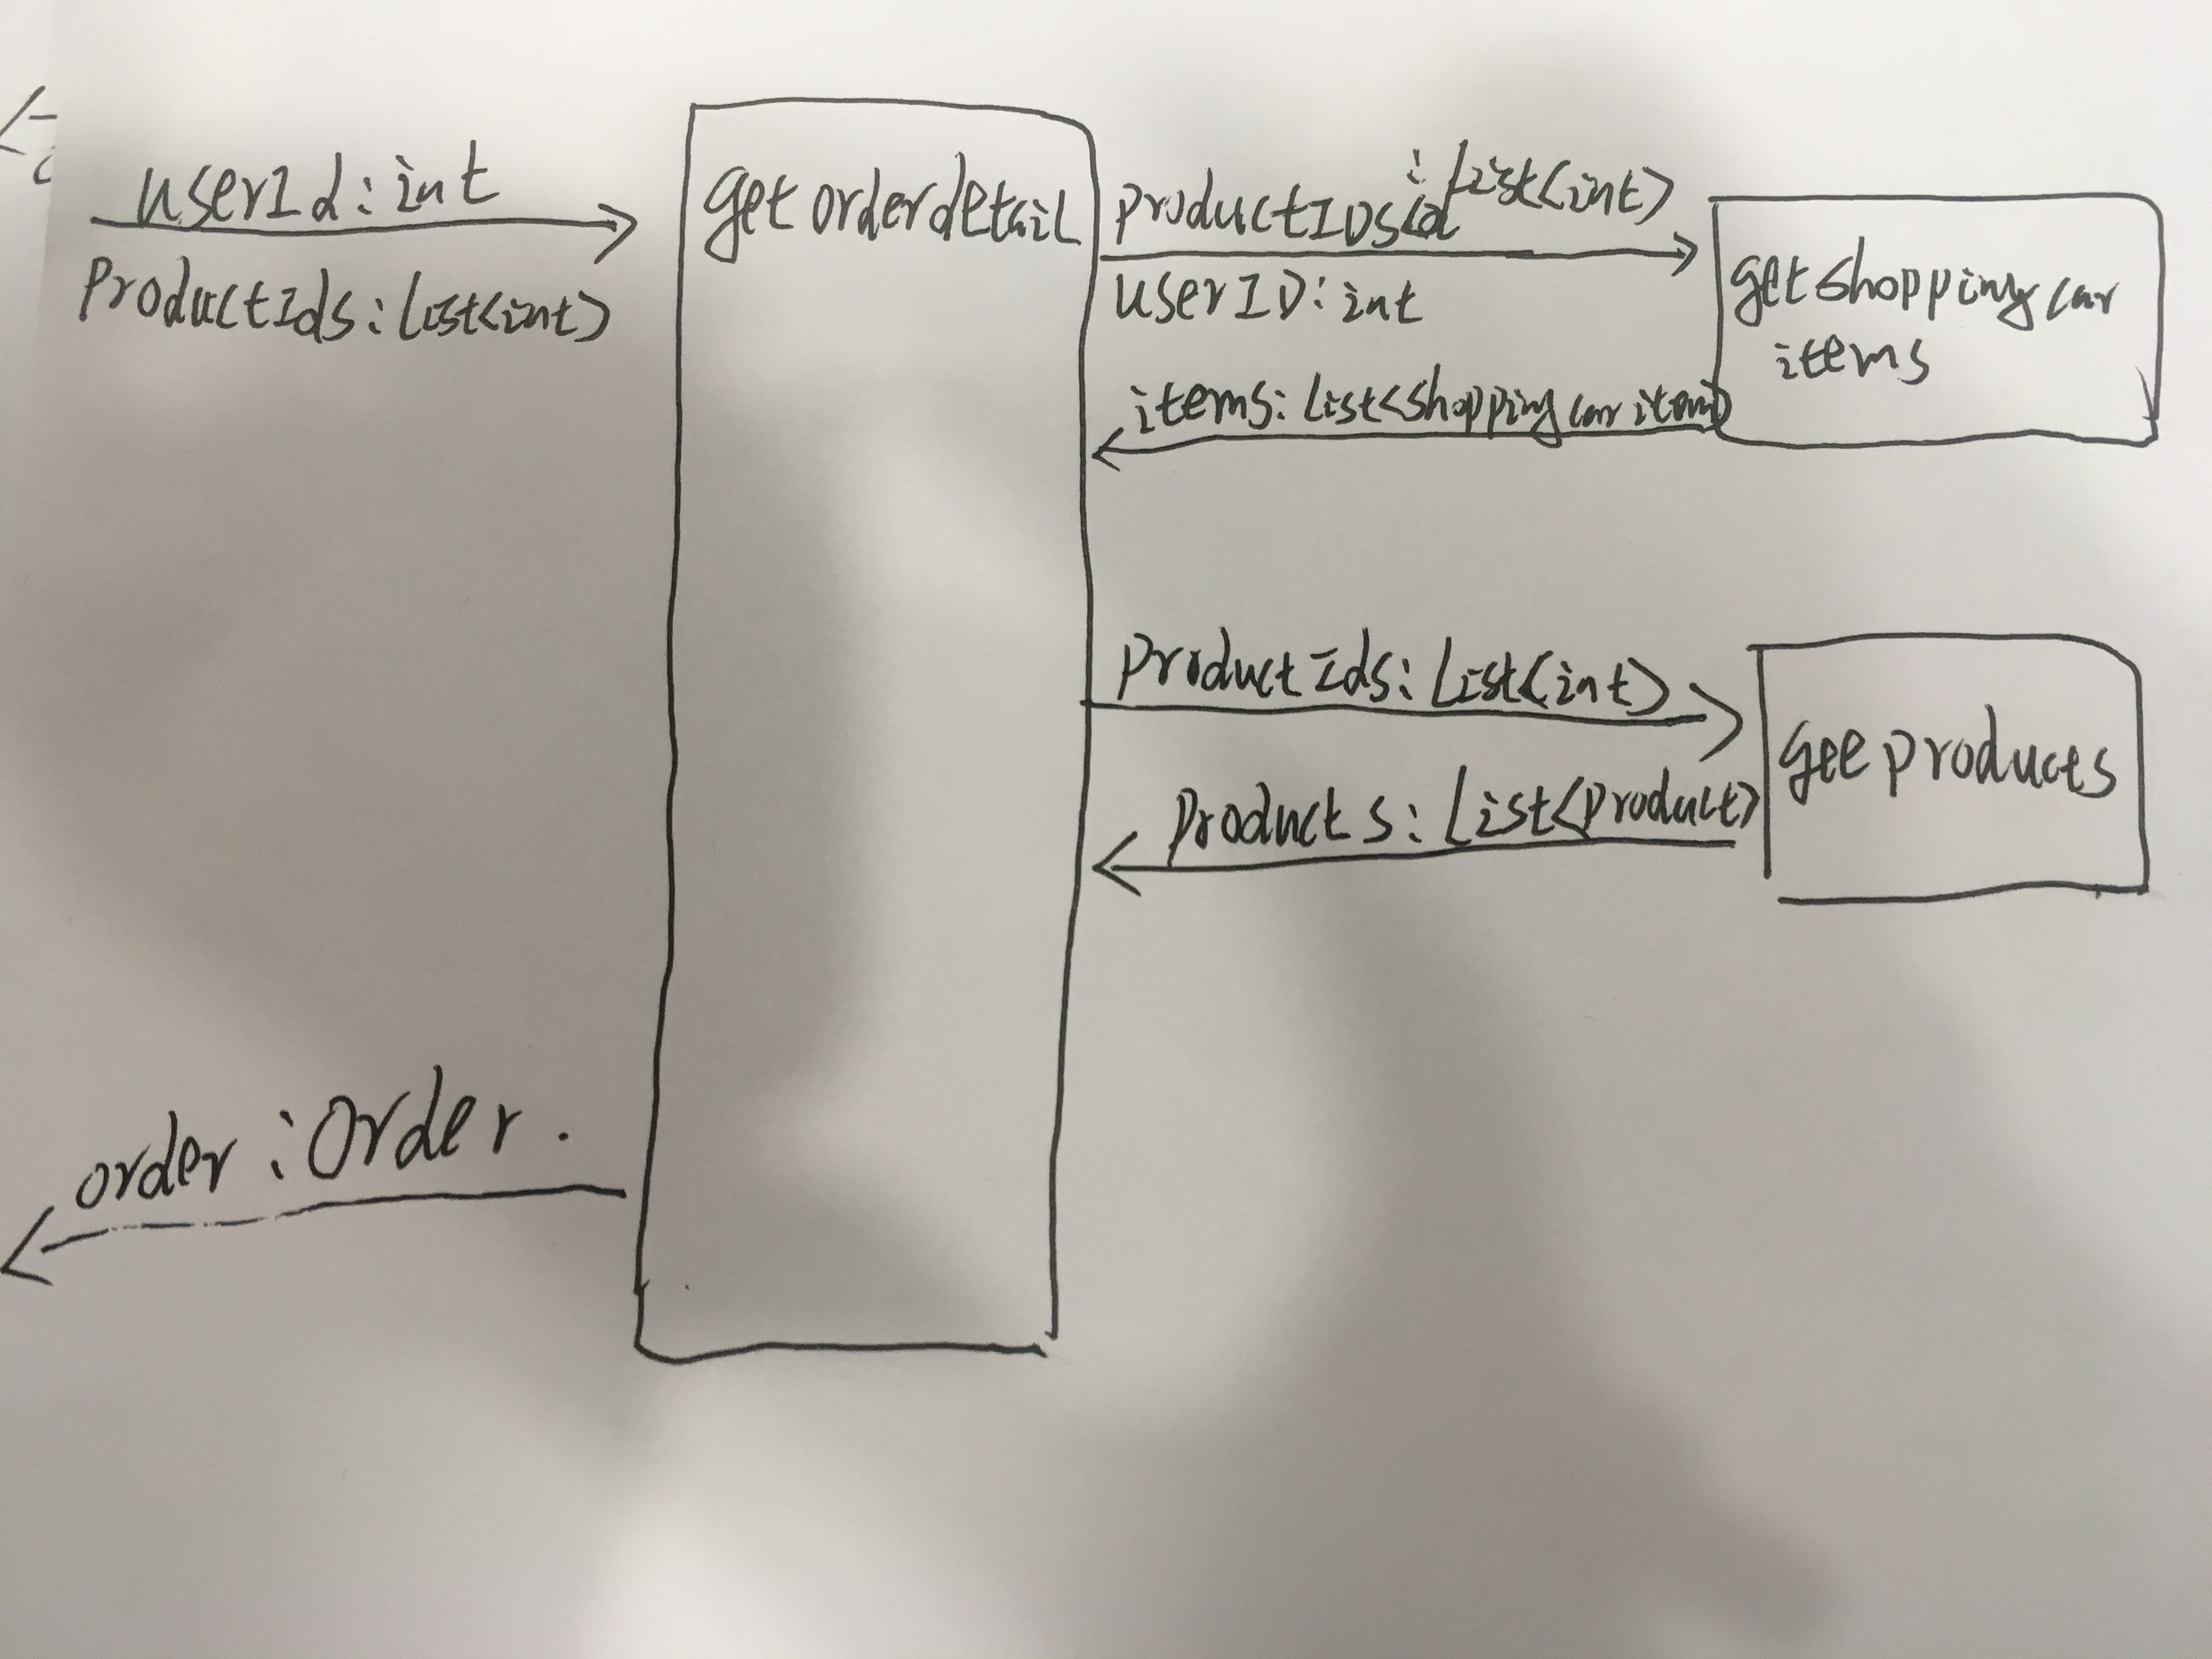 userId:int
ProductIds:List<int>
getorderdetail
productIDS :List<int>
userID:int
items:List<shoppingcaritem>
getshoppingcar
items
productIds:List<int>
products:List<product>
getproducts
order:Order.